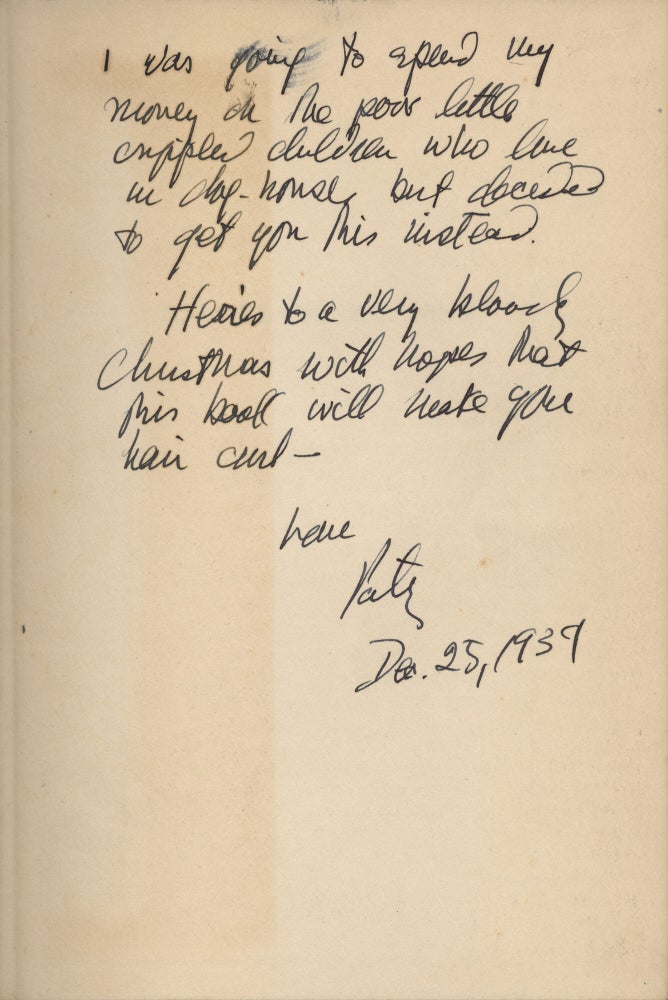 I was going to spend my
money on the poor little
crippled children who live
in dog-houses but decided
to get you this instead.
Here's to a very bloody
Christmas with hopes that
this book will make your
hair curl —
Love
Paty
Dec. 25, 1937